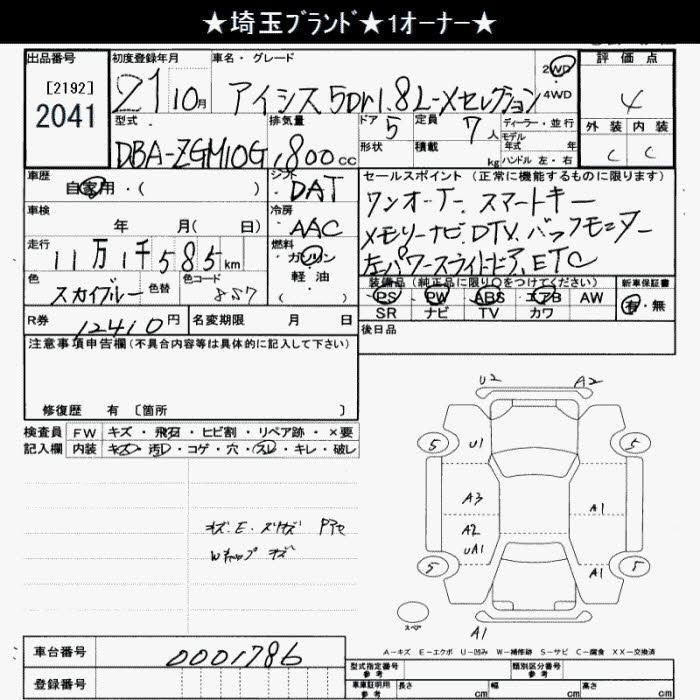 ★埼玉ﾌﾞﾗﾝﾄﾞ★1オーナー★
出品番号 初度登録年月 車名・グレード 評価点
[2192]
2041
21 10月 アイシス 5Dr 1.8 L-Xセレクション 2WD 4WD 4
型式 排気量 ドア 5 定員 7人 ディーラー・並行 外装 内装
DBA-ZGM10G 1,800cc 形状 積載 kg モデル年式 年 ハンドル 左・右 C C
車歴 シフト セールスポイント (正常に機能するものに限ります)
自家用・( ) DAT ワンオーナー. スマートキー
車検 冷房
年 月( 日) AAC メモリーナビ. DTV. バックモニター
走行 燃料
11万1千585km ガソリン 左パワースライドドア. ETC
軽・油
( )
色 色替 色コード 装備品 (純正品に限り○をつけてください) 新車保証書
スカイブルー PS PW ABS エアB AW 有・無
SR ナビ TV カワ
R券 12410円 名変期限 月 日 後日品
注意事項申告欄 (不具合内容等は具体的に記入して下さい)
修復歴 有 〔箇所 〕
検査員 FW キズ・飛石・ヒビ割・リペア跡・×要
記入欄 内装 キズ・汚れ・コゲ・穴・スレ・キレ・破レ
U2 A2
5 U1 5
A3 A1
A2
UA1
5 A1 5
スペア
A1
A-キズ E-エクボ U-凹み W-補修跡 S-サビ C-腐食 XX-交換済
車台番号 0001786
型式指定番号 参考 類別区分番号 参考
登録番号 車庫証明用 参考 長さ cm 幅 cm 高さ cm